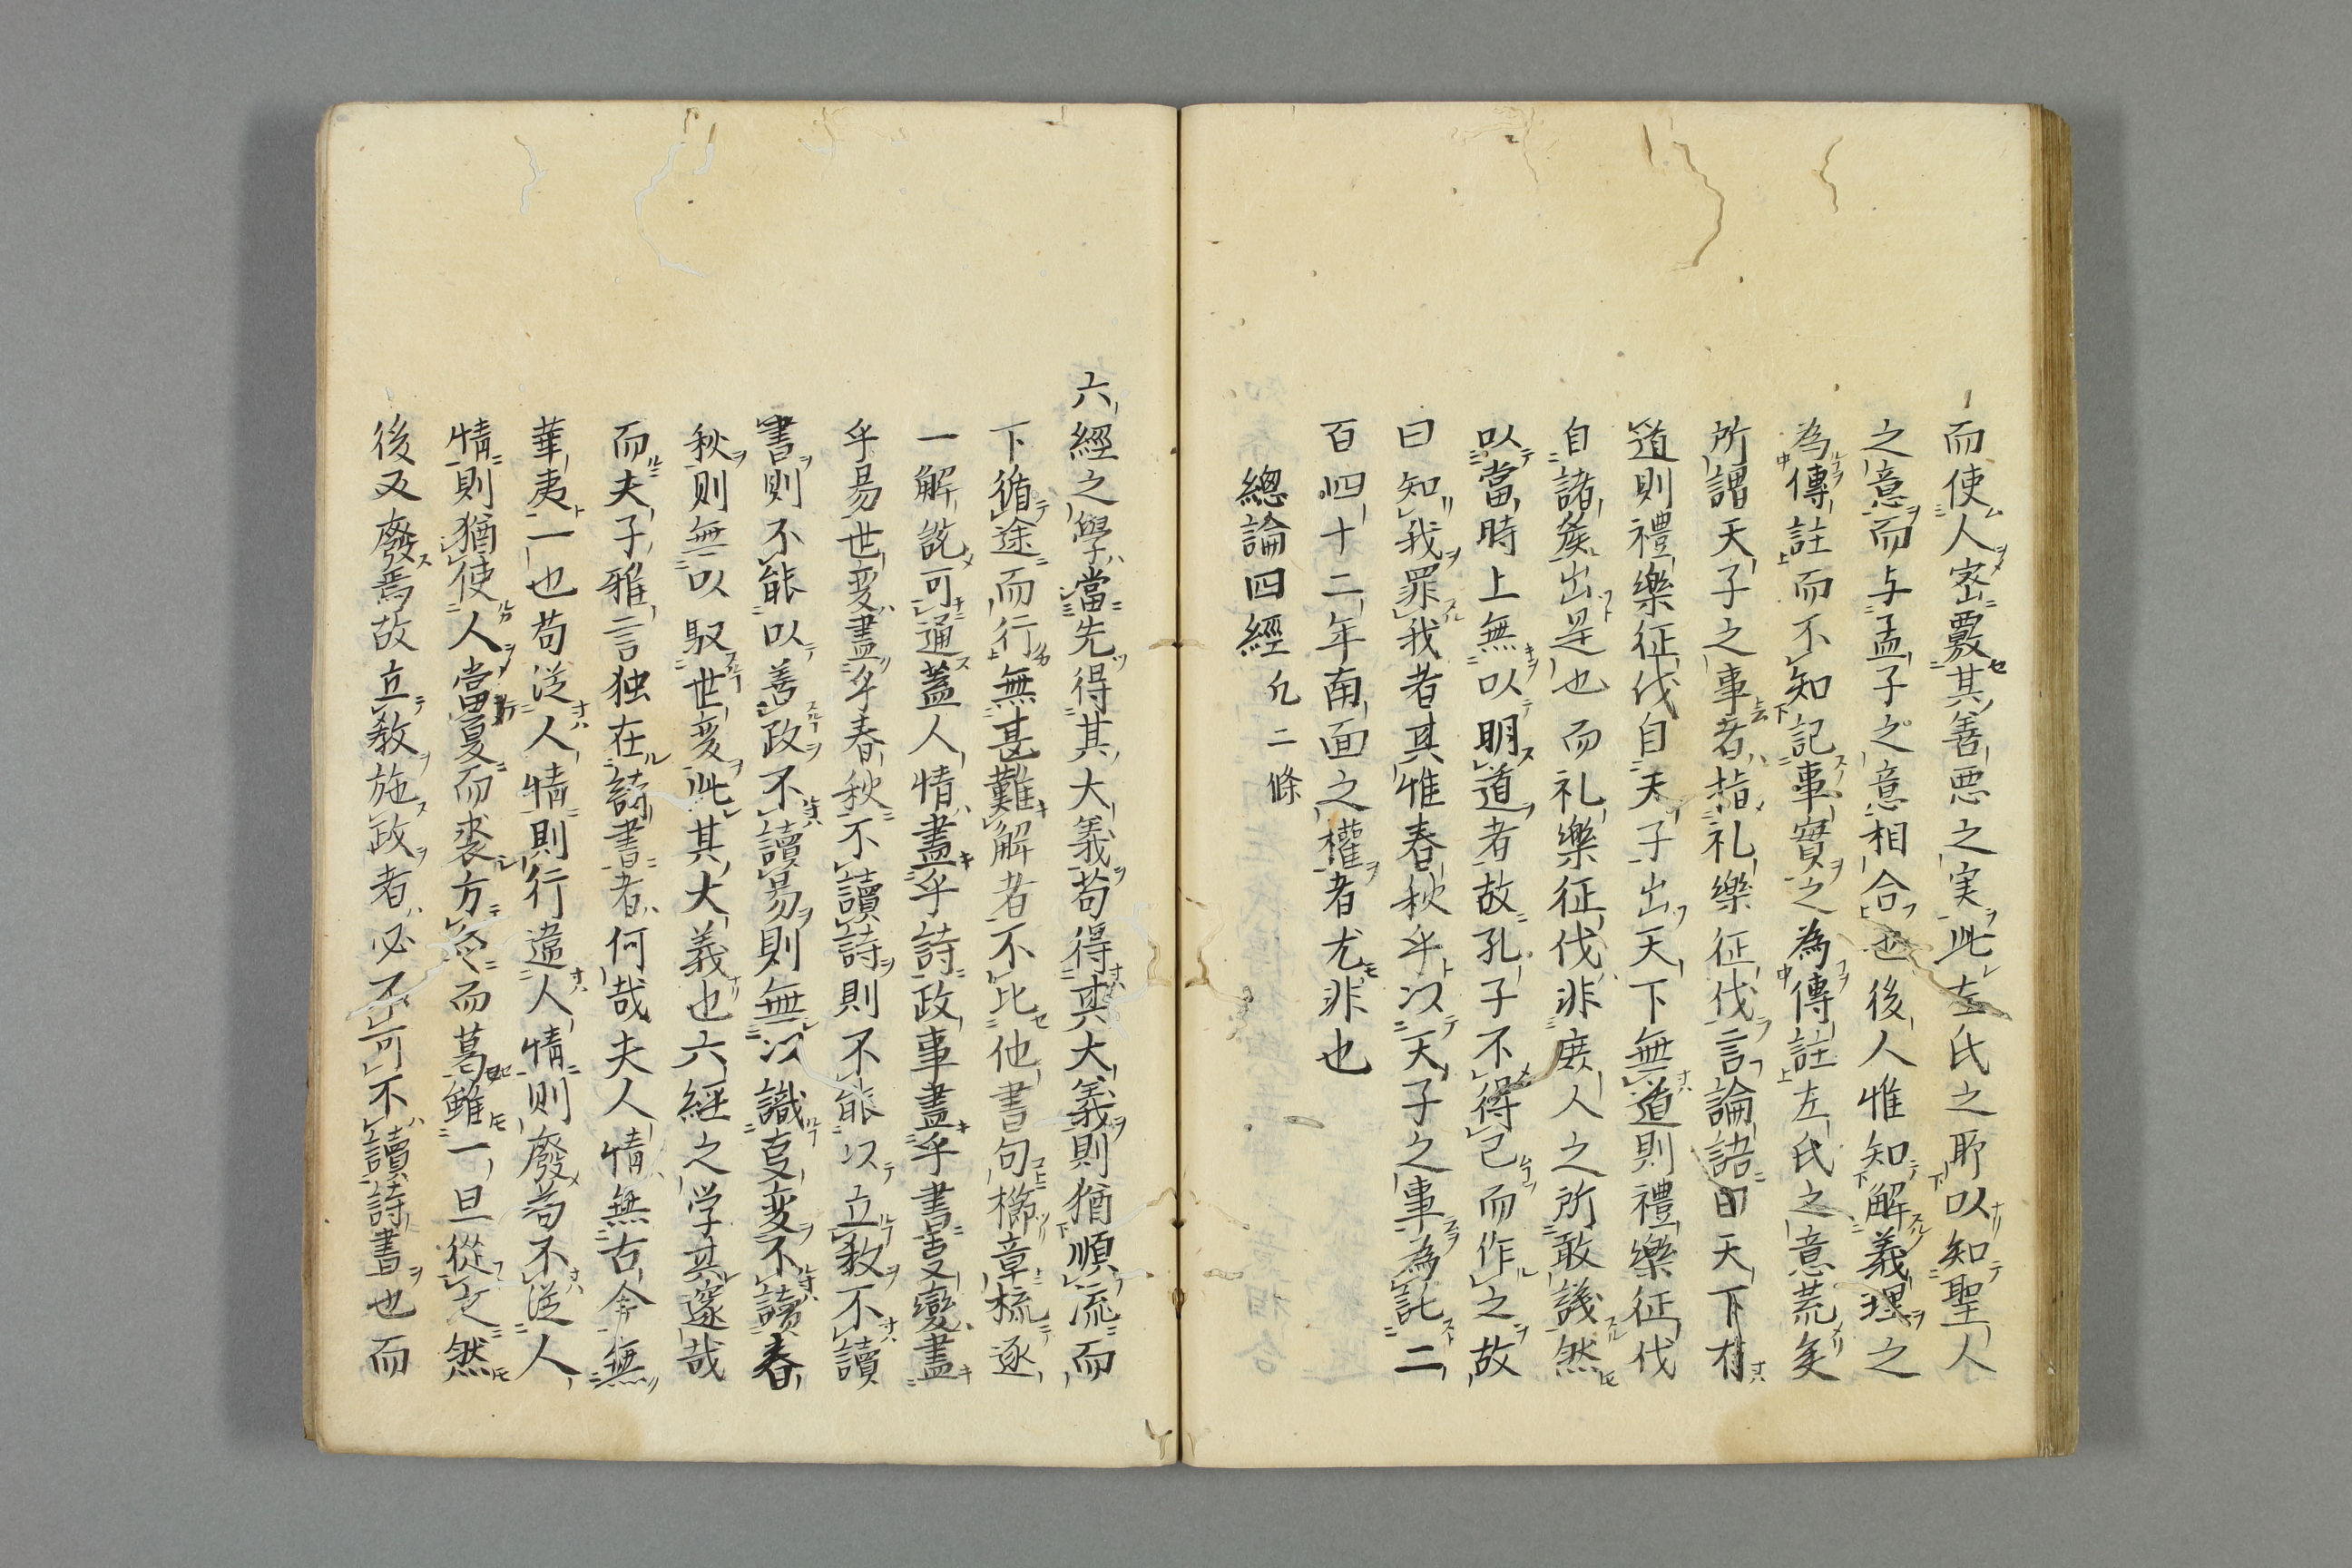 而使人密覈其善悪之実此左氏之所以知聖人
之意而与孟子之意相合也後人惟知解義理之
為傳註而不知記事實之為傳註左氏之意荒矣
所謂天子之事者指礼樂征伐言論語曰天下有
道則禮樂征伐自天子出天下無道則禮樂征伐
自諸侯出是也而礼樂征伐非庶人之所敢議然
以當時上無以明道者故孔子不得已而作之故
曰知我罪我者其惟春秋乎以天子之事為託二
百四十二年南面之權者尤非也
總論四經 凡二條
六經之學當先得其大義苟得其大義則猶順流而
下循途而行無甚難解者不比他書句櫛章梳逐
一解説可通蓋人情盡乎詩政事盡乎書事變盡
乎易世変盡乎春秋不讀詩則不能以立教不讀
書則不能以善政不讀易則無以識事変不讀春
秋則無以馭世変此其大義也六經之学其邃哉
而夫子雅言独在詩書者何哉夫人情無古今無
華夷一也苟従人情則行違人情則廢苟不従人
情則猶使人當夏而裘方冬而葛雖一旦從之然
後又廢焉故立教施政者必不可不讀詩書也而